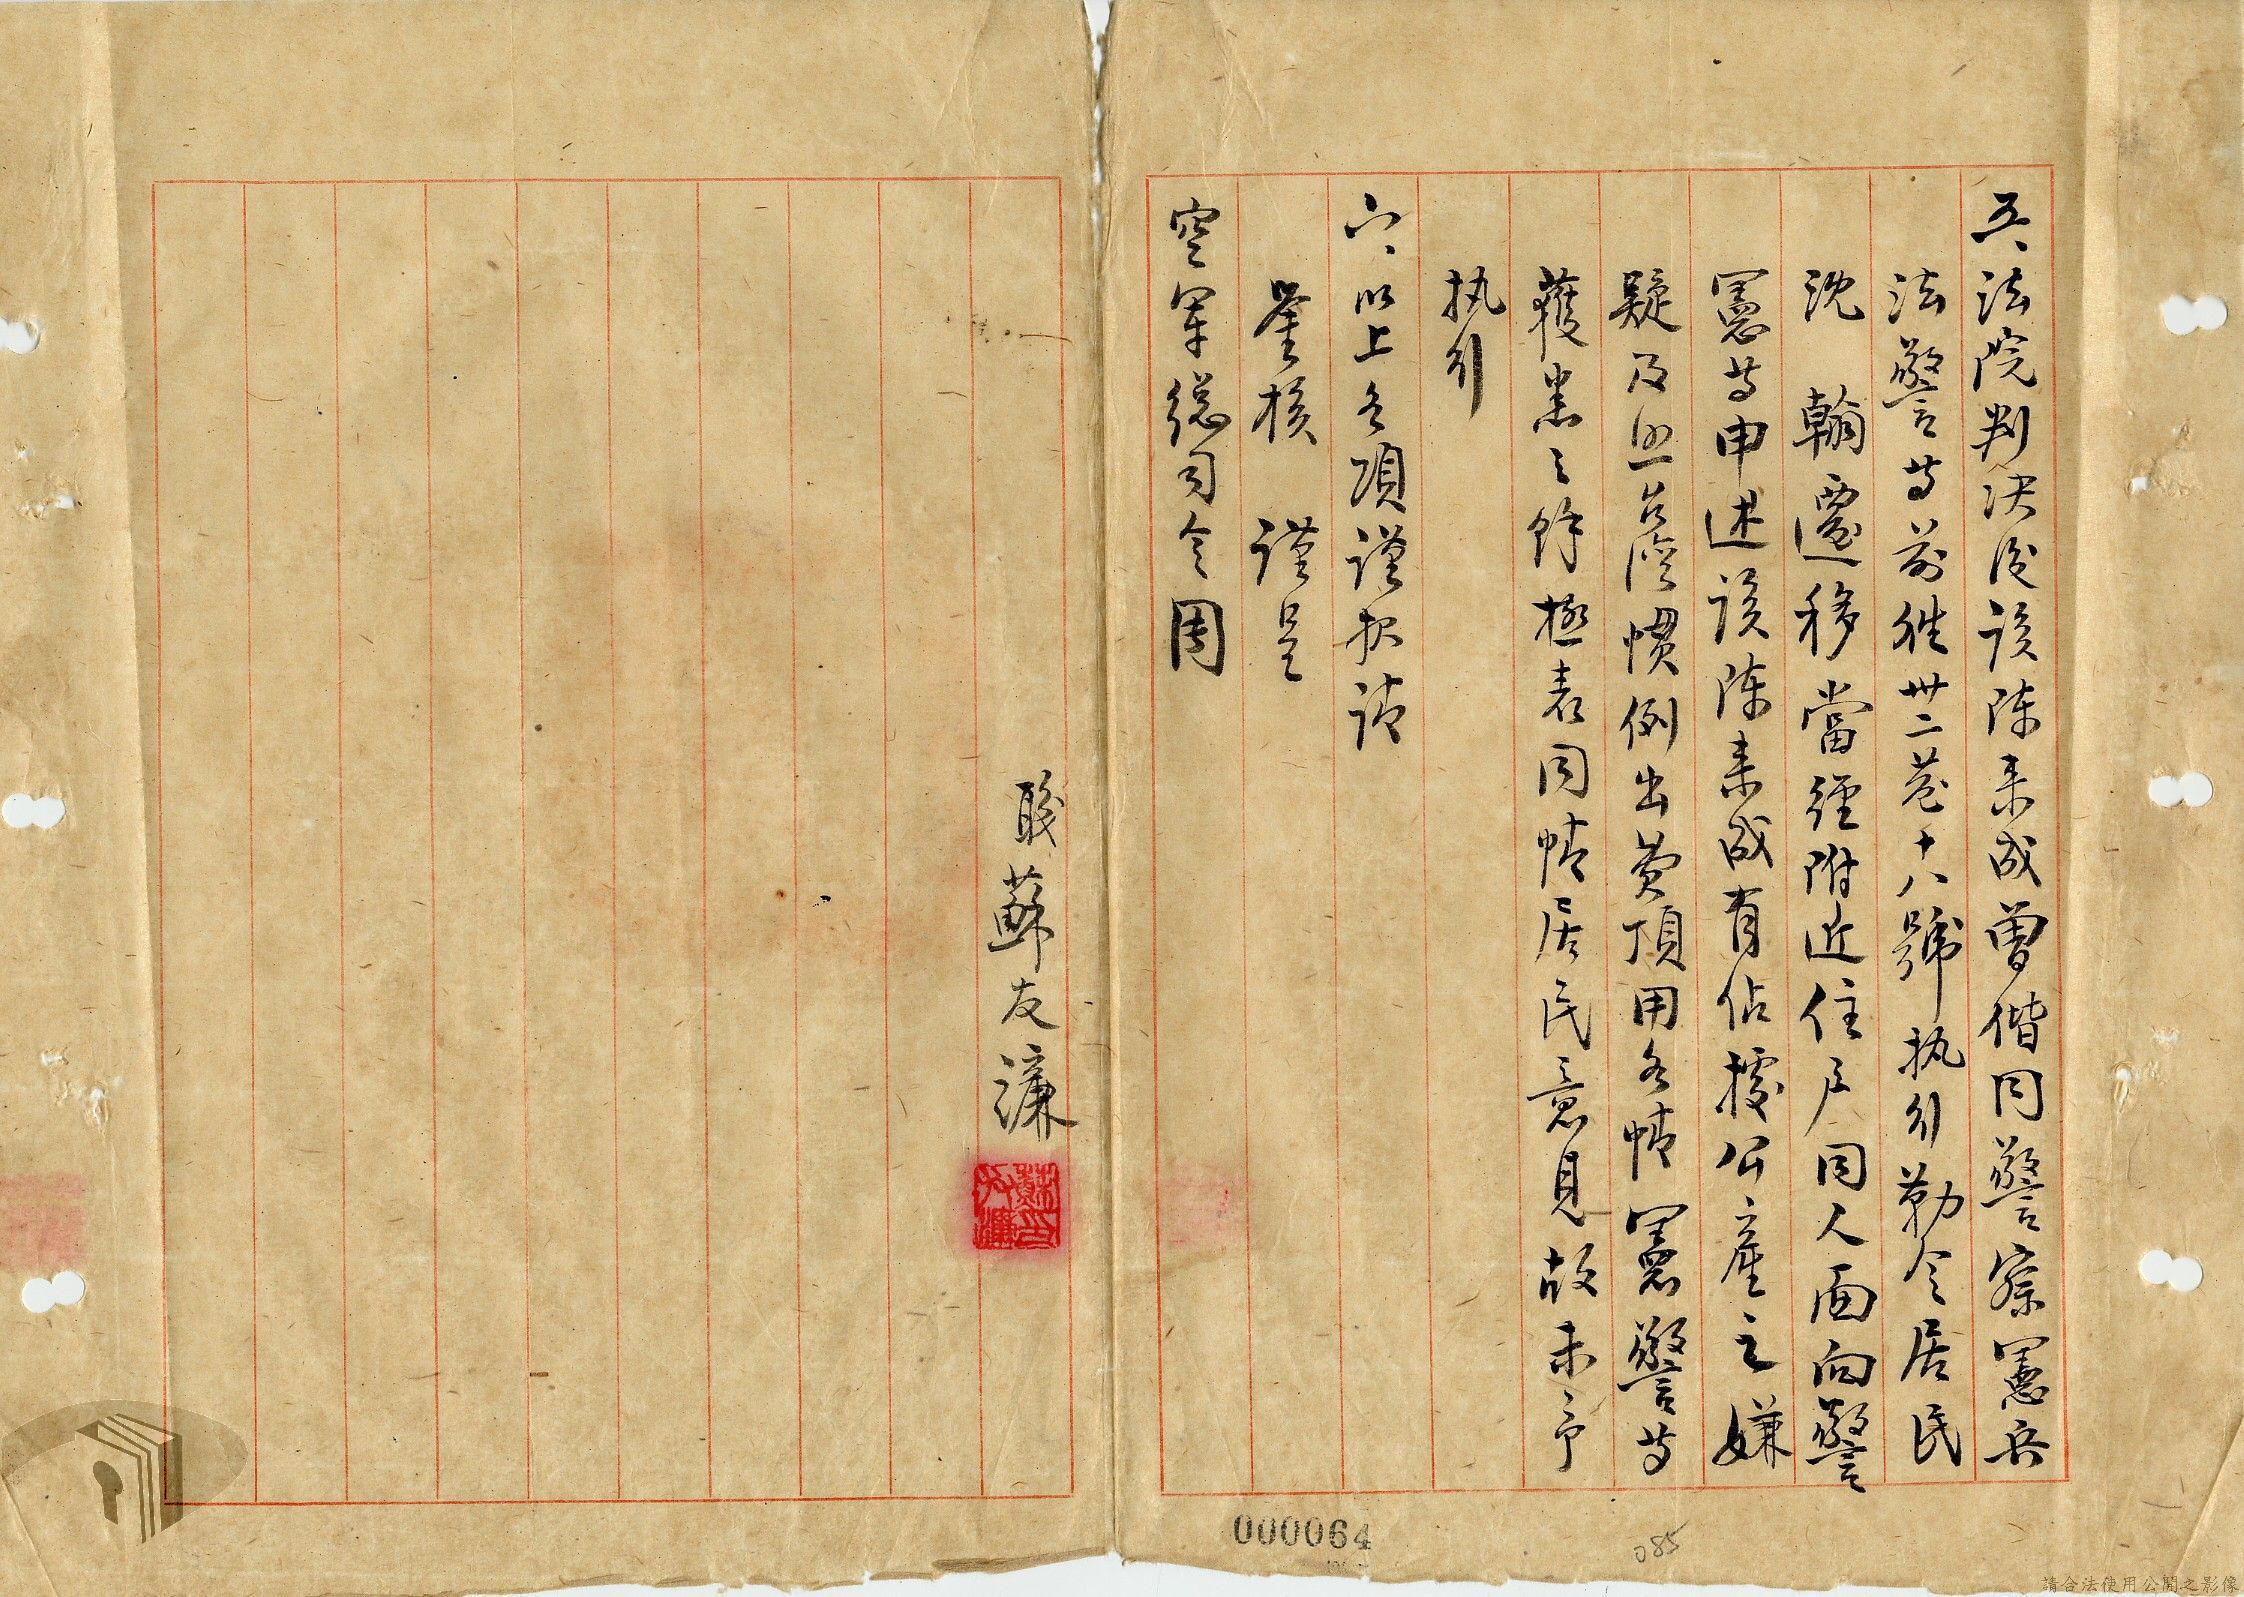 五、法院判决後該陳来成曾偕同警察憲兵
法警等前往卅二巷十八號执行勒令居民
沈　翰遷移當經附近住户同人面向警
憲等申述該陳来成有佔據公產之嫌
疑及照台灣慣例出費頂用各情憲警等
獲悉之餘極表同情居民意見故未予
执行
六、以上各項謹报請
鉴核　謹呈
空軍總司令周
職蘇友濂
蘇友濂印
000064
085
請合法使用公開之影像